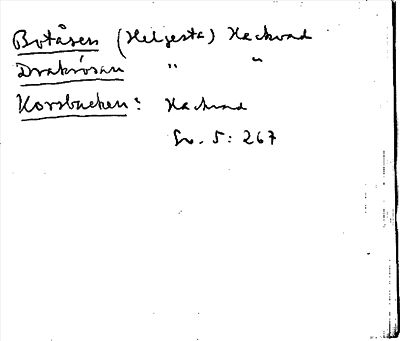 Botåsen (Helgesta) Hackvad
Drakrösan " "
Korsbacken: Hackvad
Sv. 5: 267